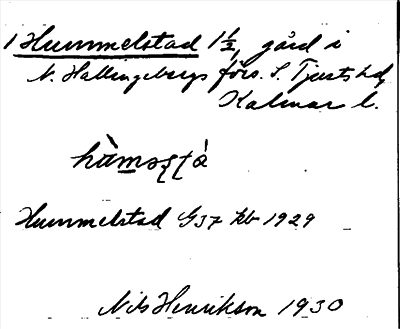 1 Hummelstad 1 1/2, gård i
N. Hallingebergs förs. S. Tjusts hd,
Kalmar l.
Hummelstad G37 kb 1929
Nils Henrikson 1930